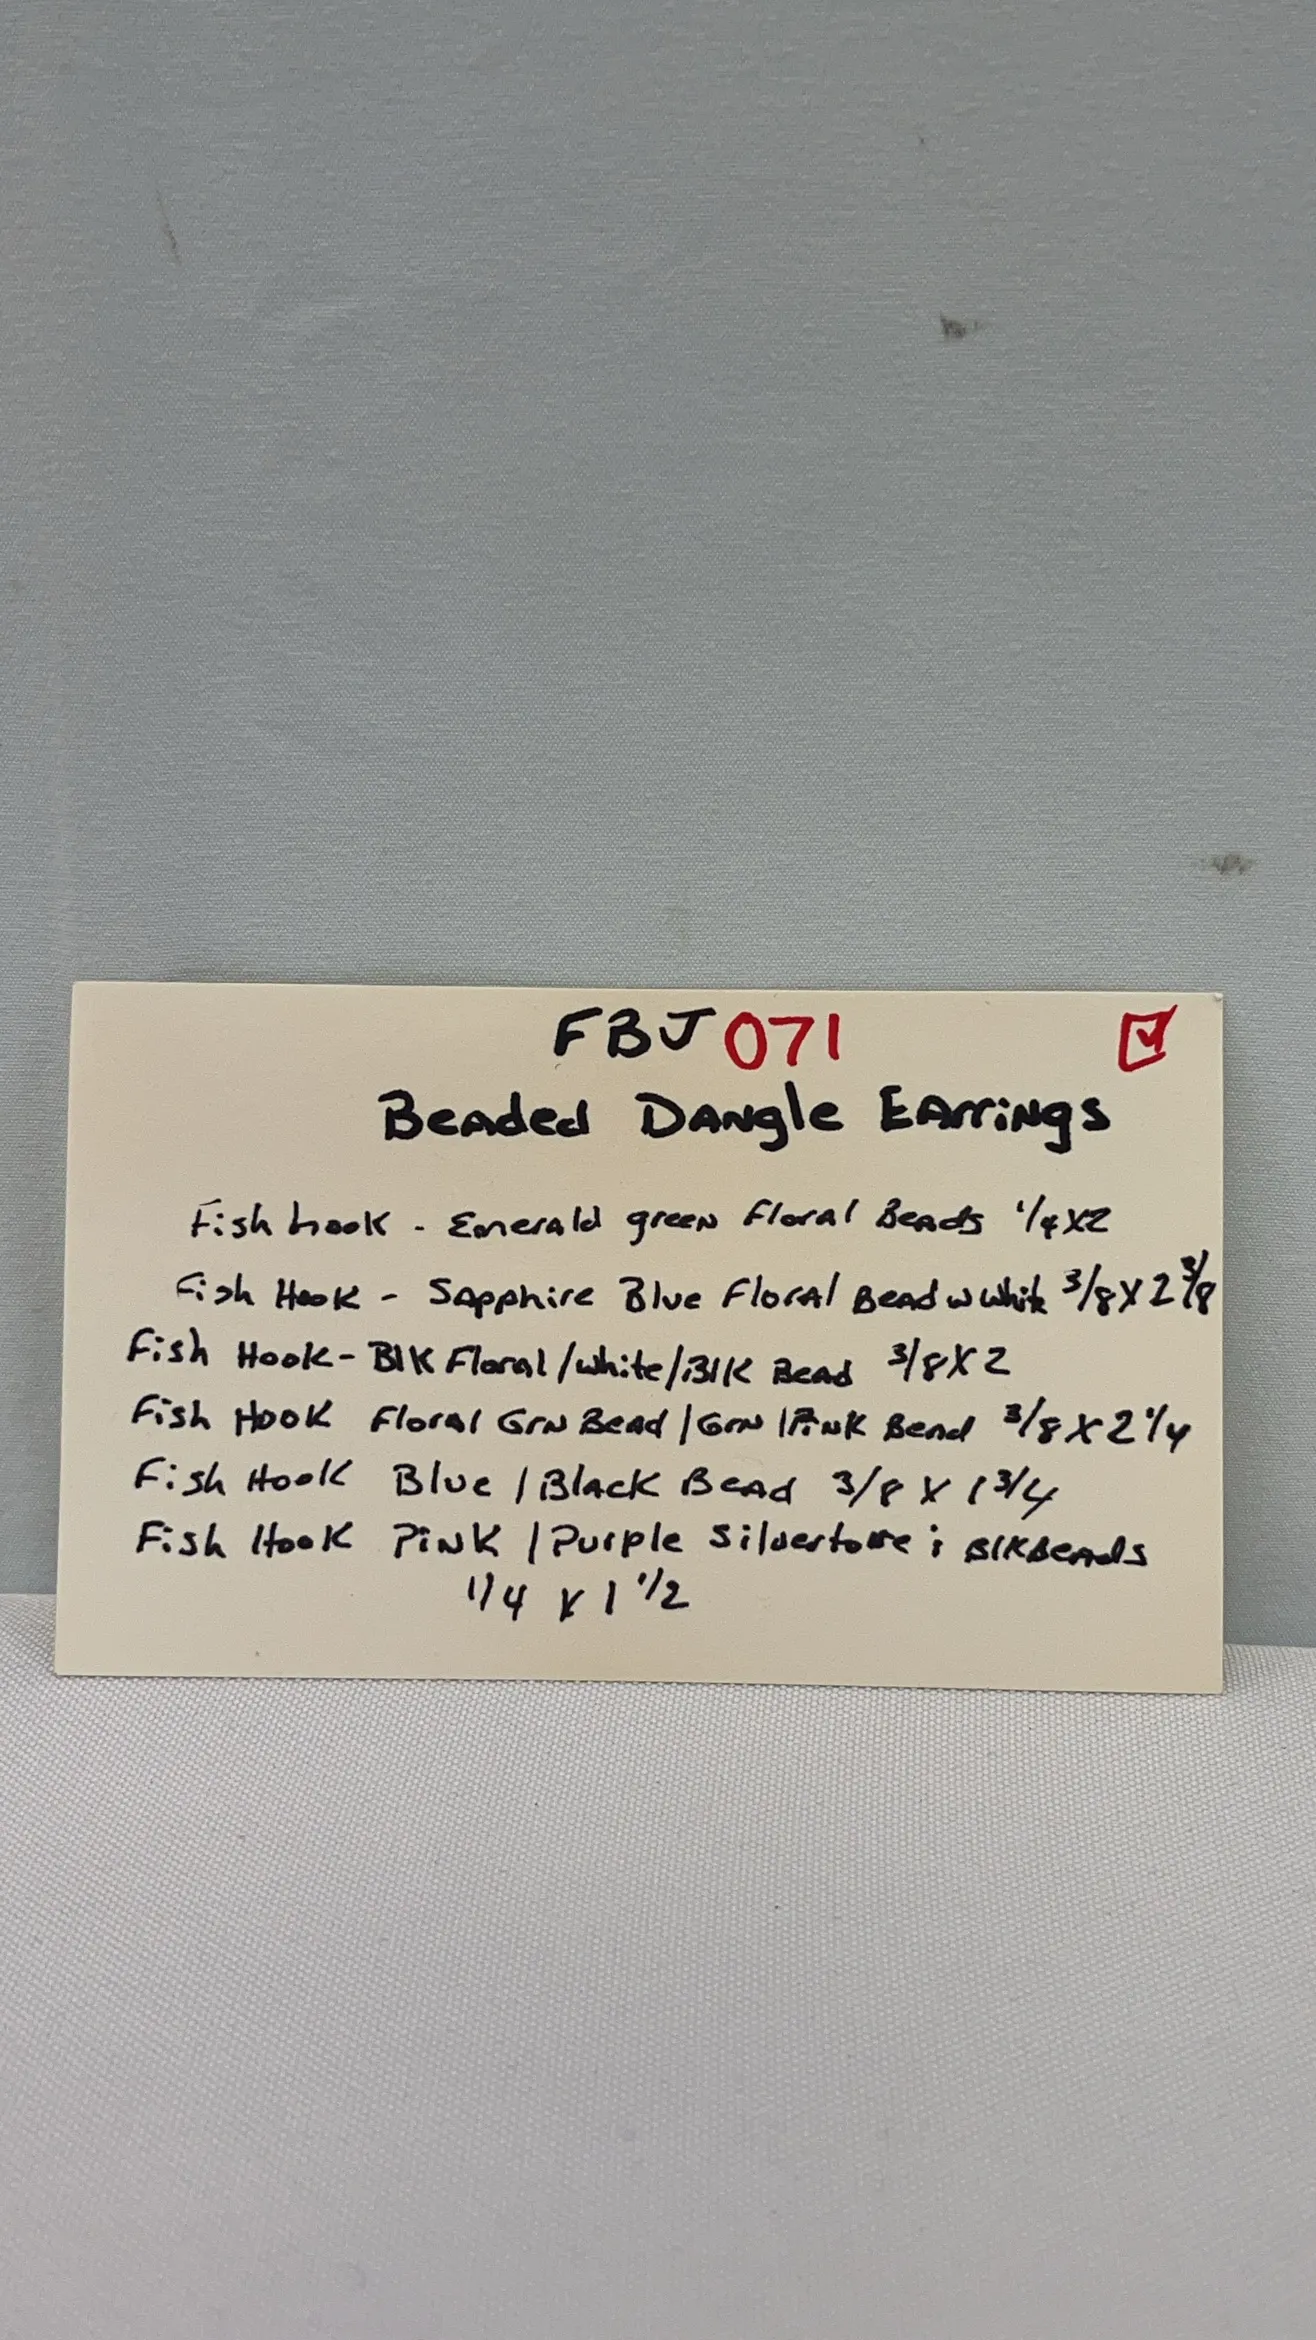 FBJ 071
Beaded Dangle Earrings
Fish hook - Emerald green Floral Beads 1/4 X 2
Fish Hook - Sapphire Blue Floral Bead w white 3/8 X 2 3/8
Fish Hook - Blk Floral/white/Blk Bead 3/8 X 2
Fish Hook Floral Grn Bead/Grn/Pink Bead 3/8 X 2 1/4
Fish Hook Blue/Black Bead 3/8 X 1 3/4
Fish Hook Pink/Purple Silvertone ; Blk Beads
1/4 X 1 1/2